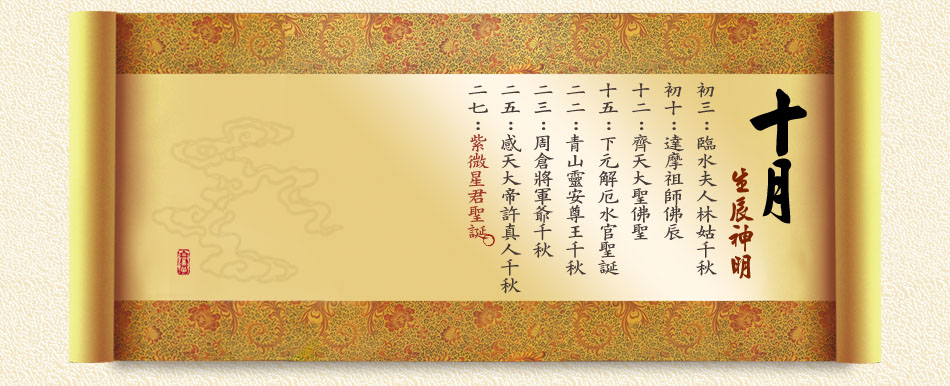 十月
生辰神明
初三：臨水夫人林姑千秋
初十：達摩祖師佛辰
十二：齊天大聖佛聖
十五：下元解厄水官聖誕
二二：青山靈安尊王千秋
二三：周倉將軍爺千秋
二五：感天大帝許真人千秋
二七：紫微星君聖誕